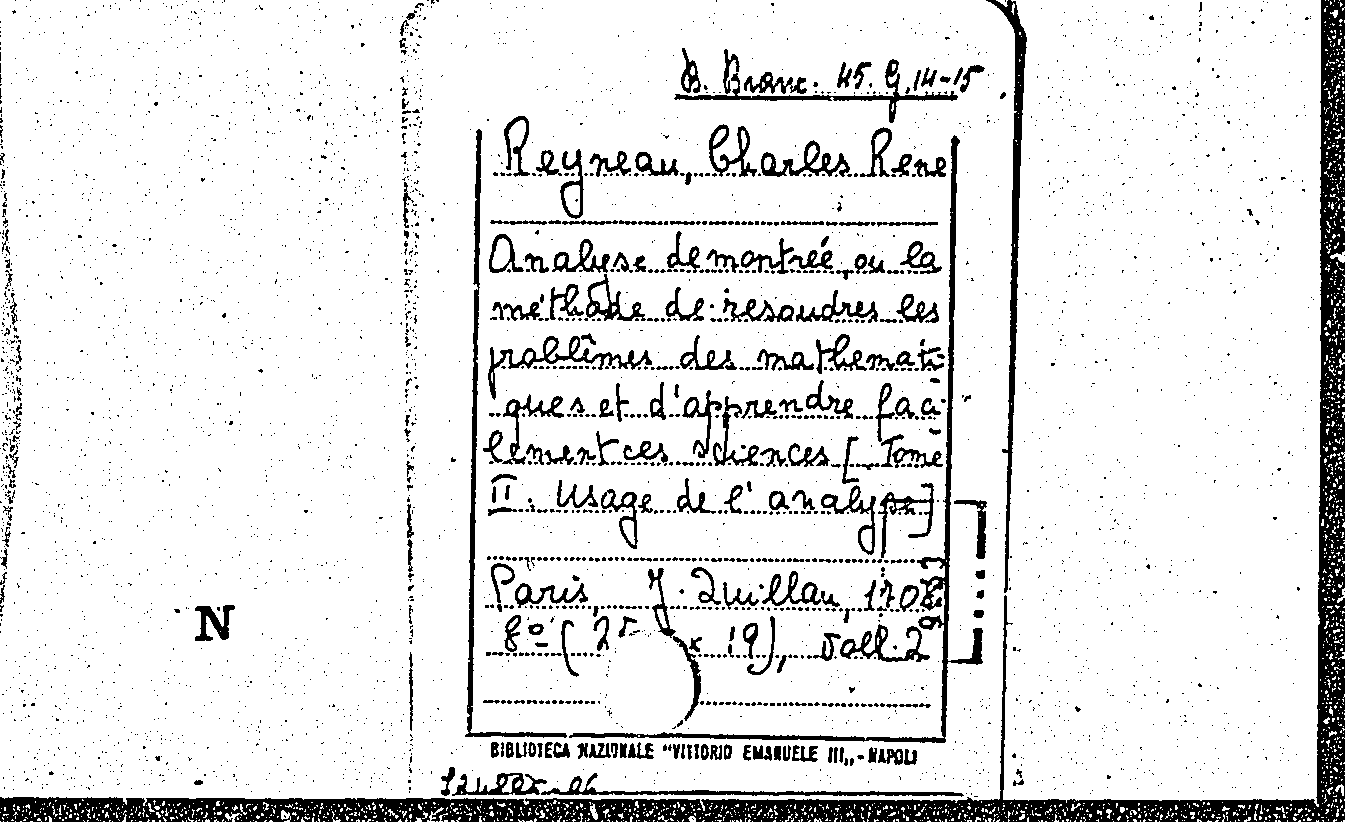 B. Branc. 45. G. 14-15
Reyneau, Charles Rene
Analyse demontrée, ou la
méthode de resoudres les
problêmes des mathemati-
ques et d'apprendre faci-
lement ces sciences [Tome
II. Usage de l'analyse]
Paris, J. Quillau, 1708
8º (25 x 19), voll. 2
BIBLIOTECA NAZIONALE "VITTORIO EMANUELE III,, - NAPOLI
N